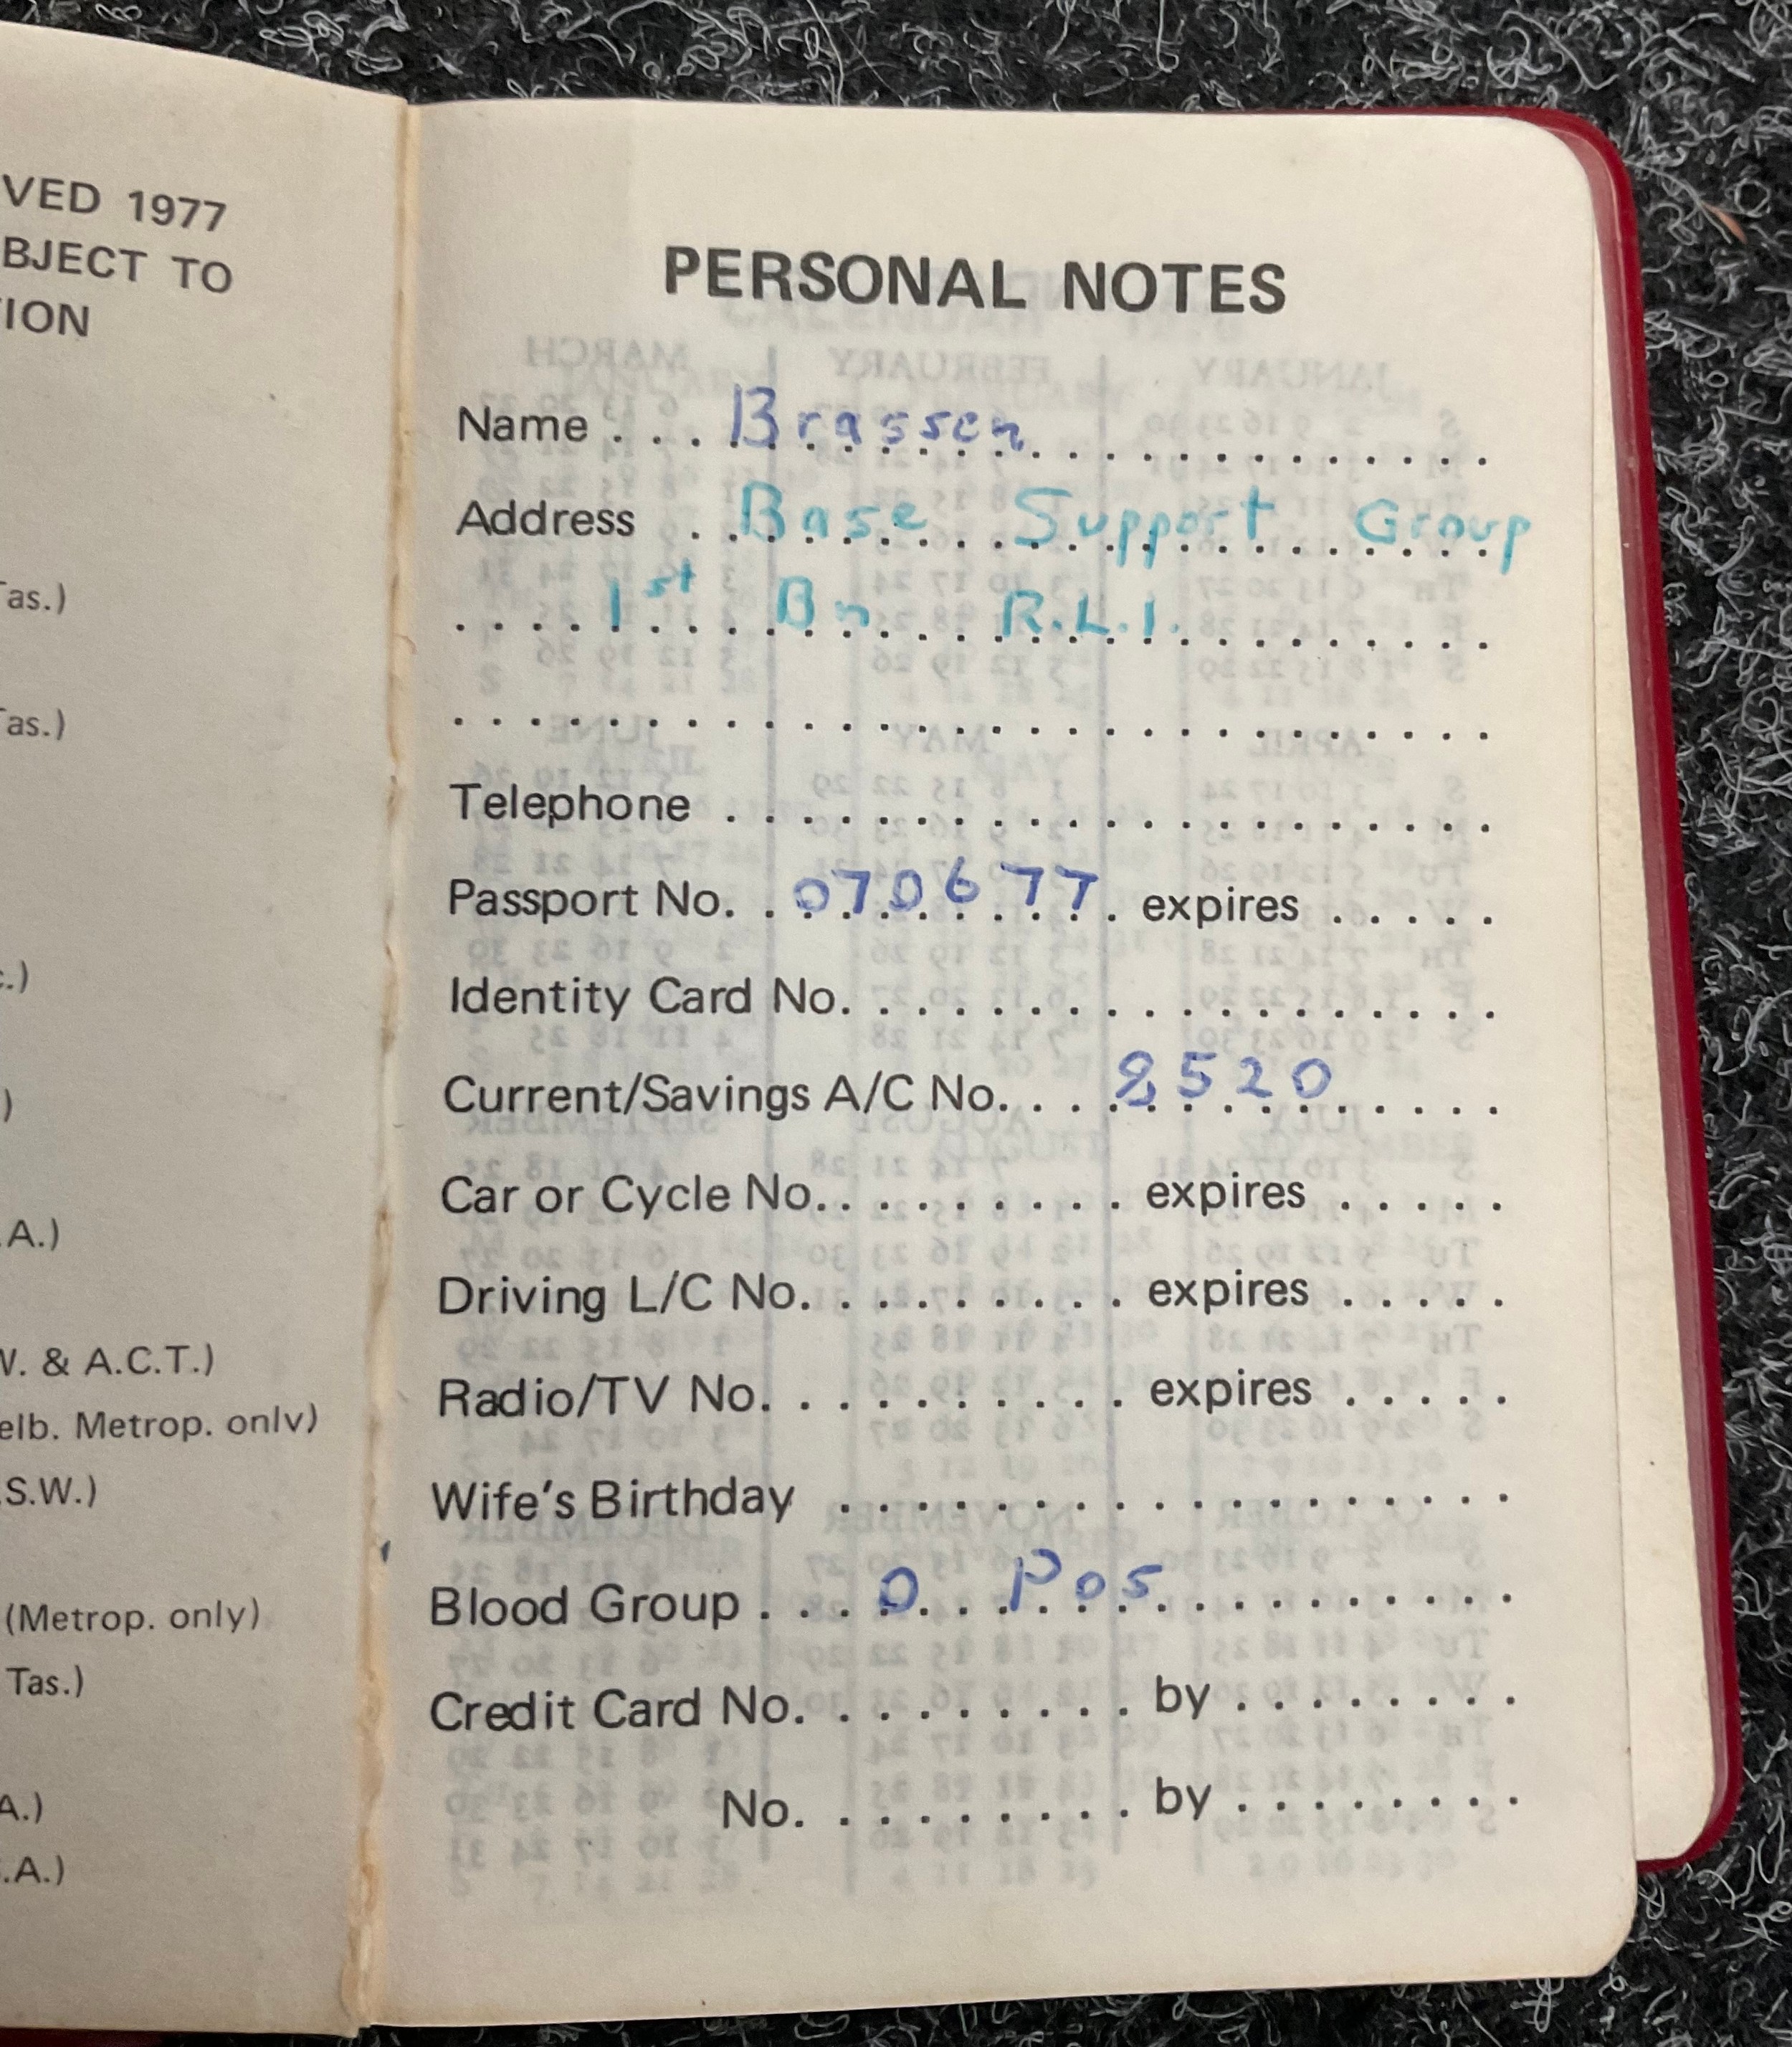 VED 1977
BJECT TO
ION
as.)
as.)
c.)
)
.A.)
V. & A.C.T.)
elb. Metrop. only)
.S.W.)
(Metrop. only)
Tas.)
A.)
.A.)
PERSONAL NOTES
Name . . . Brassen . . . . . . . . . . . .
Address . Base Support Group
. . . . 1st Bn R.L.I. . . . . . . . .
. . . . . . . . . . . . . . . . . . . . . . . . . . . .
Telephone . . . . . . . . . . . . . . . . . . . . .
Passport No. . 070677 . expires . . . . .
Identity Card No. . . . . . . . . . . . . . . . . .
Current/Savings A/C No. . . . 8520 . . . .
Car or Cycle No. . . . . . . . . . expires . . . . .
Driving L/C No. . . . . . . . . . expires . . . . .
Radio/TV No. . . . . . . . . . . expires . . . . .
Wife's Birthday . . . . . . . . . . . . . . . . . .
Blood Group . . . . O Pos . . . . . . . . . .
Credit Card No. . . . . . . . . . by . . . . . . . .
No. . . . . . . . . . by . . . . . . . .